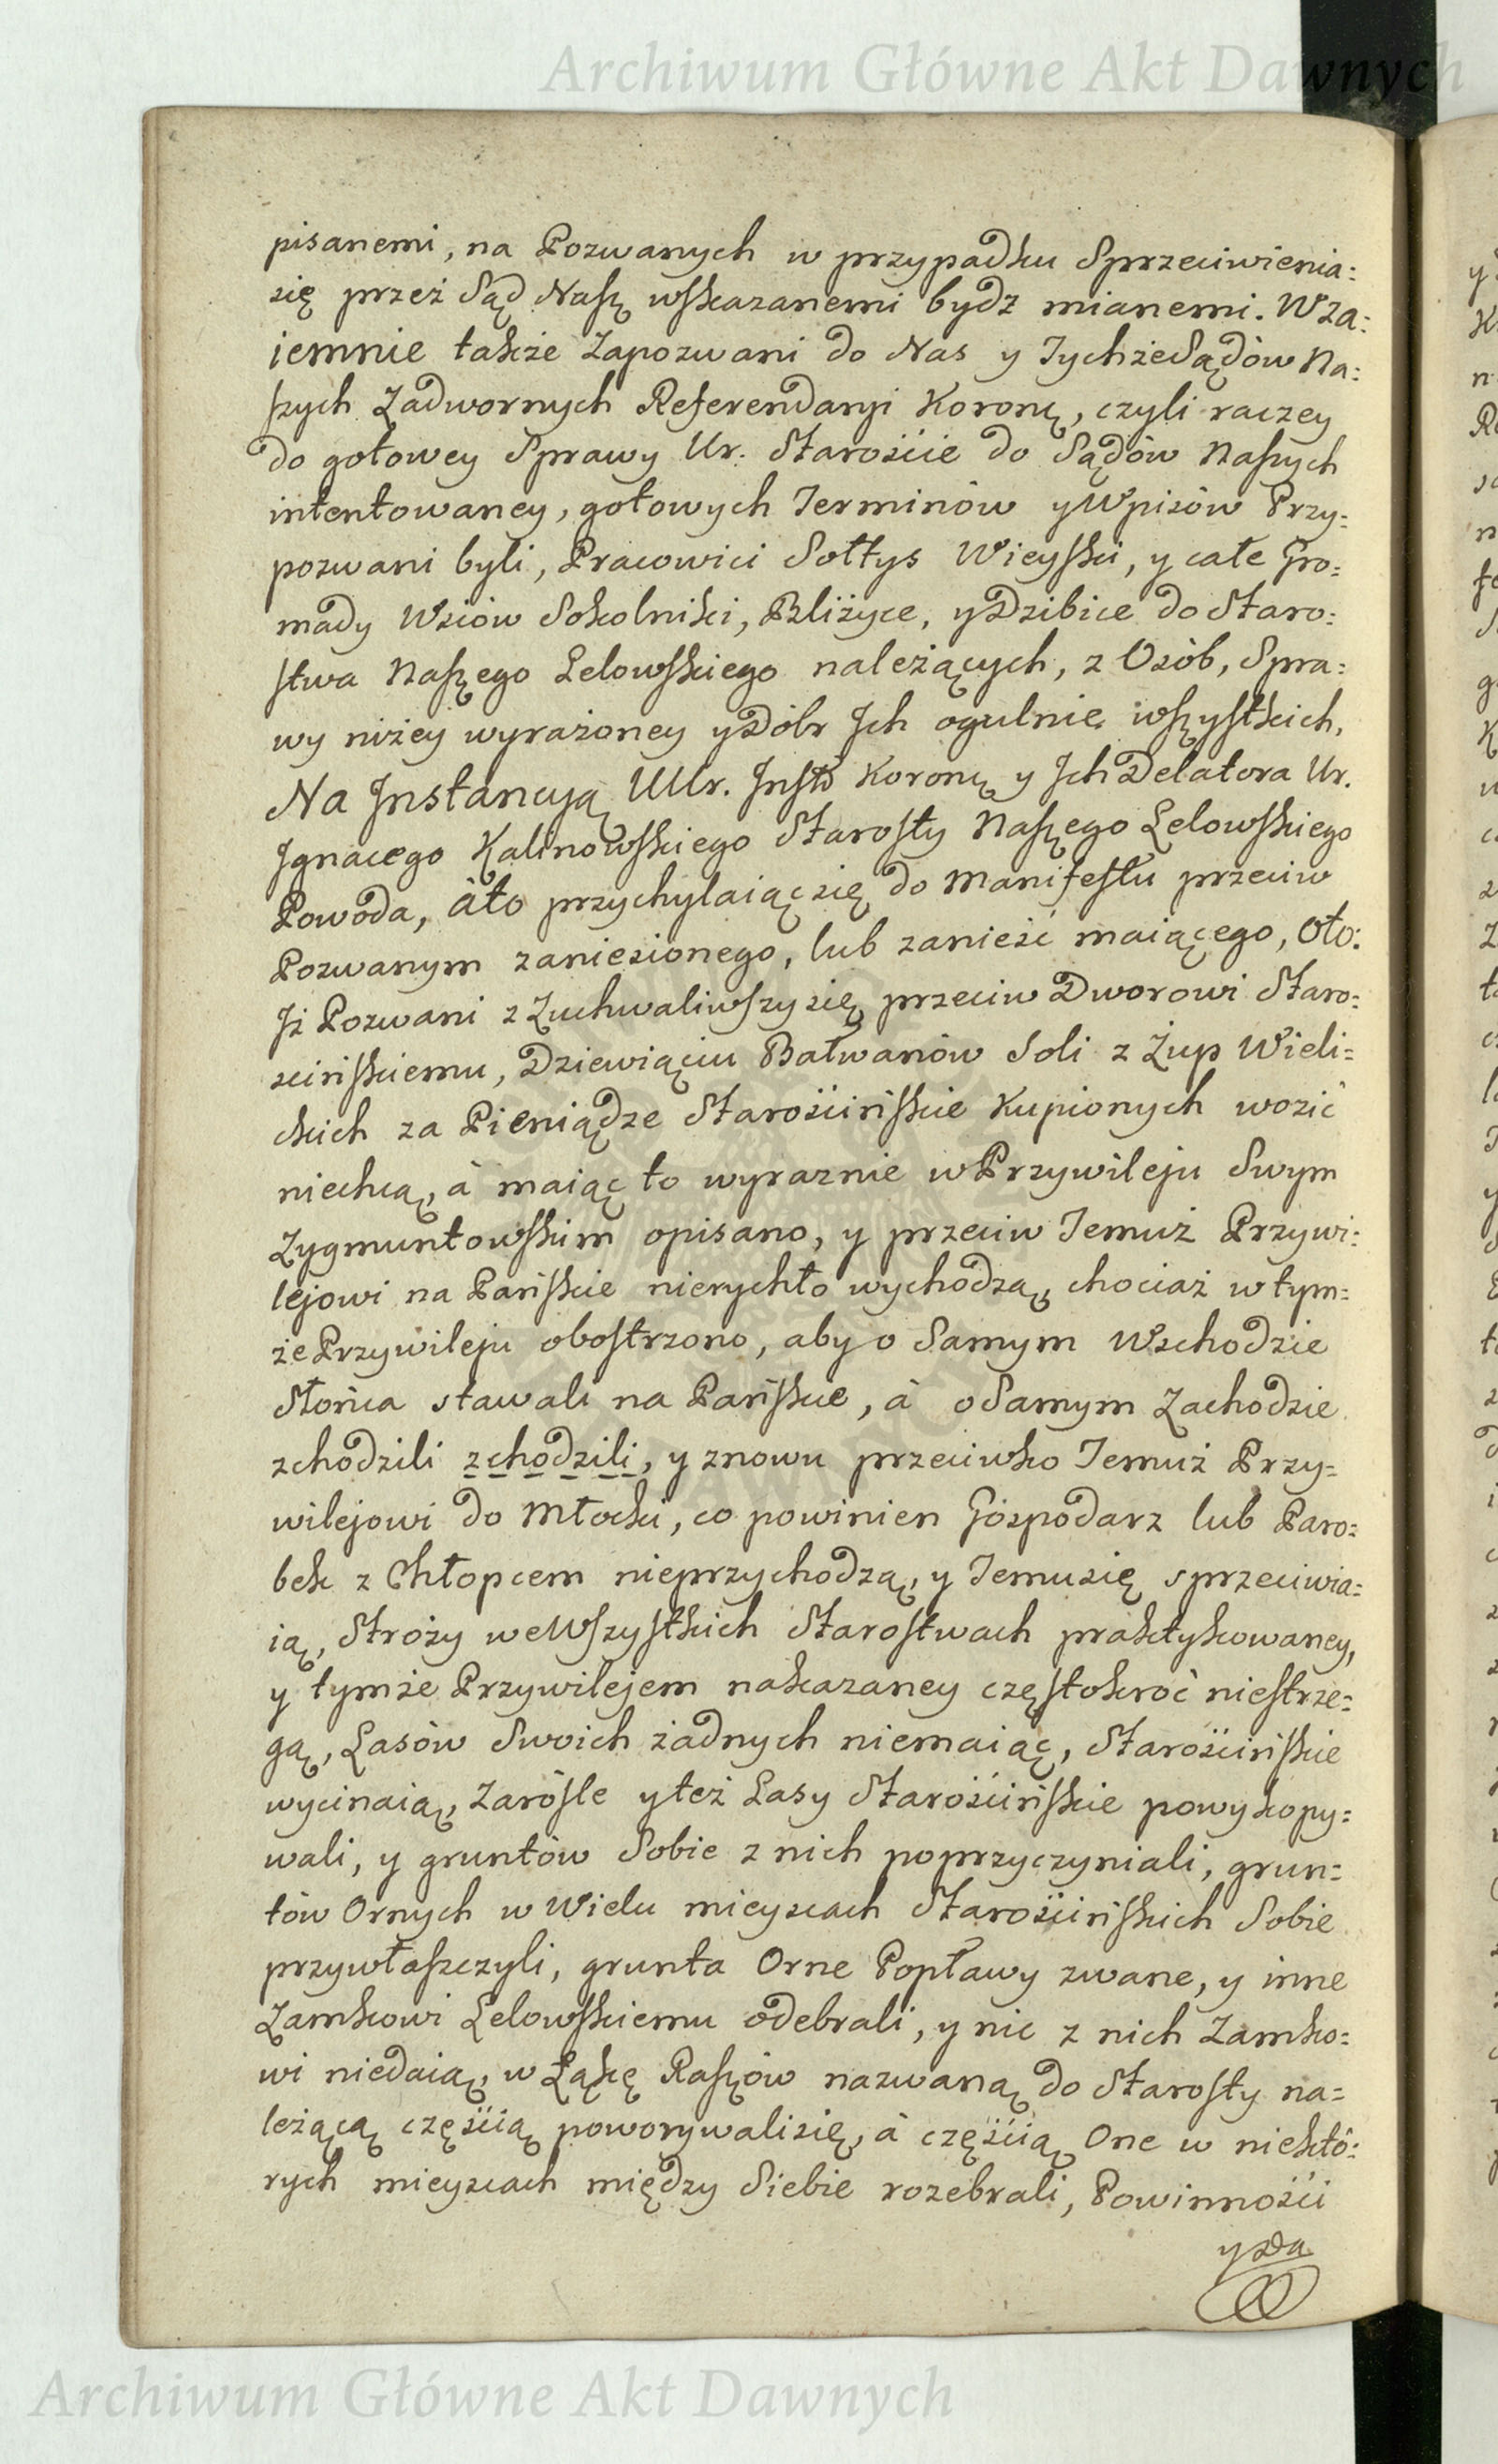 Archiwum Główne Akt Dawnych
pisanemi, na Pozwanych w przypadku Sprzeciwienia:
się przez Sąd Nasz wskazanemi bydz mianemi. Wza:
iemnie także Zapozwani do Nas y Tychże Sądów Na:
szych Zadwornych Referendaryi Koronę, czyli raczey
do gotowey Sprawy Ur. Starościie do Sądów Naszych
intentowaney, gotowych Terminów y Wpisów Przy:
pozwani byli, Pracowici Sołtys Wieyski, y całe Gro:
mady Wsiów Sokolniki, Bliżyce, y Dzibice do Staro:
stwa Naszego Lelowskiego należących, z Osób, Spra:
wy niżey wyrażoney y Dóbr Ich ogulnie wszystkich,
Na Instancyją UUr. Insts Koronę y Ich Delatora Ur.
Ignacego Kalinowskiego Starosty Naszego Lelowskiego
Powoda, àto przychylaiąc się do Manifestu przeciw
Pozwanym zaniesionego, lub zanieść maiącego, Oto:
Iż Pozwani z Zuchwaliwszy się przeciw Dworowi Staro:
scińskiemu, Dziewiąciu Bałwanów Soli z Żup Wieli:
ckich za Pieniądze Starościńskie Kupionych wozić
niechcą, à maiąc to wyraznie w Przywileju Swym
Zygmuntowskim opisano, y przeciw Temuż Przywi:
lejowi na Pańskie nierychło wychodzą, chociaż w tym:
że Przywileju obostrzono, aby o Samym Wschodzie
Słońca stawali na Pańskie, à o Samym Zachodzie
zchodzili zchodzili, y znowu przeciwko Temuż Przy:
wilejowi do Młocki, co powinien Gospodarz lub Paro:
bek z Chłopcem nieprzychodzą, y Temu się sprzeciwia:
ią, Stroży we Wszystkich Starostwach praktykowaney,
y tymże Przywilejem nakazaney częstokroć niestrze:
gą, Lasów Swoich żadnych niemaiąc, Starościńskie
wycinaią, Zarośle y też Lasy Starościńskie powykopy:
wali, y gruntów Sobie z nich poprzyczyniali, grun:
tów Ornych w Wielu mieyscach Starościńskich Sobie
przywłaszczyli, grunta Orne Popławy zwane, y inne
Zamkowi Lelowskiemu odebrali, y nic z nich Zamko:
wi niedaią, w Łąkę Raszów nazwaną do Starosty na:
leżącą częścią poworywali się, à częścią One w niektó:
rych mieyscach między Siebie rozebrali, Powinności
y Da
Archiwum Główne Akt Dawnych